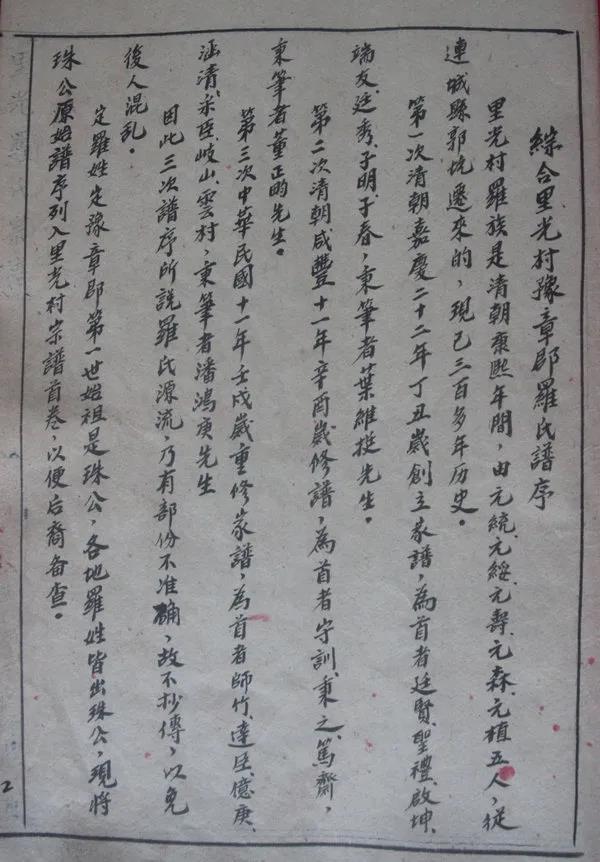 綜合里光村豫章郡羅氏譜序
里光村羅族是清朝康熙年間，由元統、元綏、元壽、元森、元植五人，從
連城縣郭坑遷來的，現已三百多年历史。
第一次清朝嘉慶二十二年丁丑歲創立家譜，為首者廷賢、聖禮、啟坤、
端友、廷秀、子明、子春，秉筆者葉維挺先生。
第二次清朝咸豐十一年辛酉歲修譜，為首者守訓、秉之、篤齋，
秉筆者董正昀先生。
第三次中華民國十一年壬戌歲重修家譜，為首者師竹、達臣、億庚、
涵清、采臣、岐山、雲村，秉筆者潘鴻庚先生
因此三次譜序所説羅氏源流，乃有部份不准确，故不抄傳，以免
後人混乱。
定羅姓定豫章郡第一世始祖是珠公，各地羅姓皆出珠公，現將
珠公原始譜序列入里光村宗譜首卷，以便后裔备查。
2